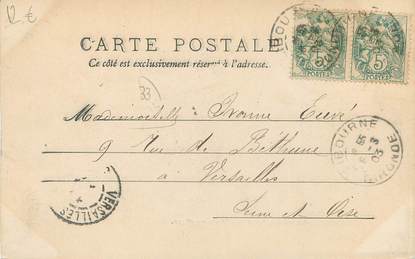 12 €
CARTE POSTALE
Ce côté est exclusivement réservé à l'adresse.
33
Mademoiselle Yvonne
9 Rue de Béthune
à Versailles
Seine et Oise
5 5
POSTES POSTES
LIBOURNE
GIRONDE
VERSAILLES